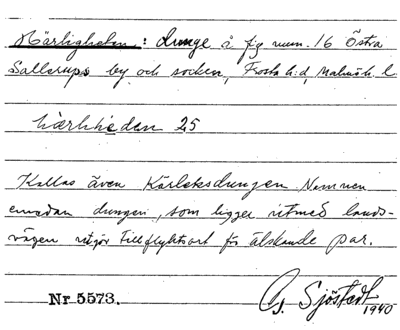 Härligheten: dunge å fig num. 16 Östra
Sallerups by och socken, Frosta h:d, Malmöh. l.
hærliheden 25
Kallas även Kärleksdungen Namnen
emedan dungen, som ligger utmed lands-
vägen utgör tillflyktsort för älskande par.
Nr 5573. G. Sjöstedt
1940